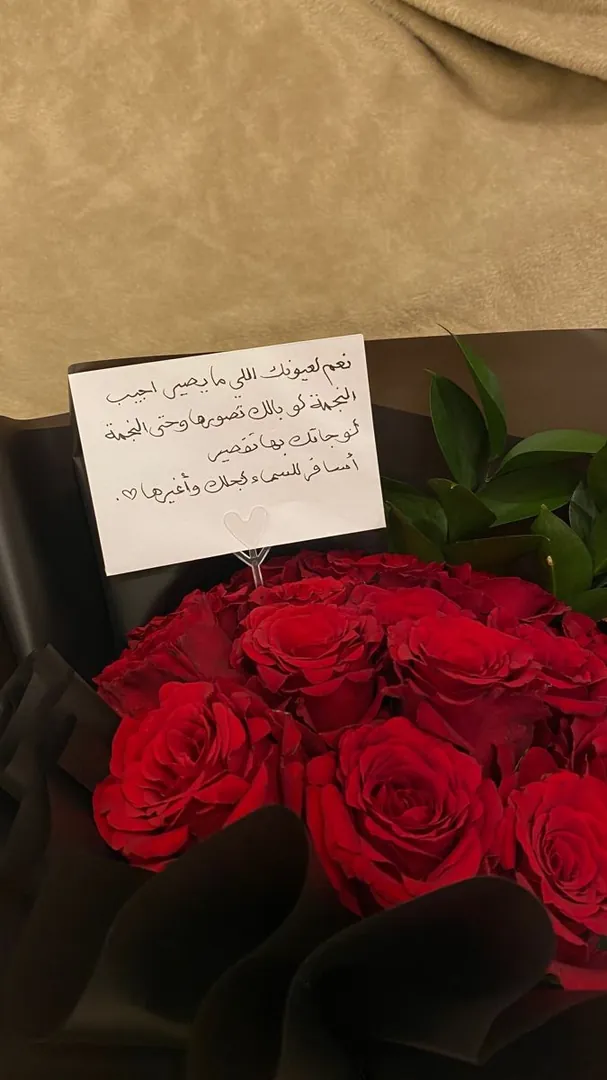 نعم لعيونك اللي ما يصير اجيب
النجمة لو بالك تصورها وحتى النجمة
لو جاتك بها تقصير
أسافر للسماء لجلك وأغيرها ♡.